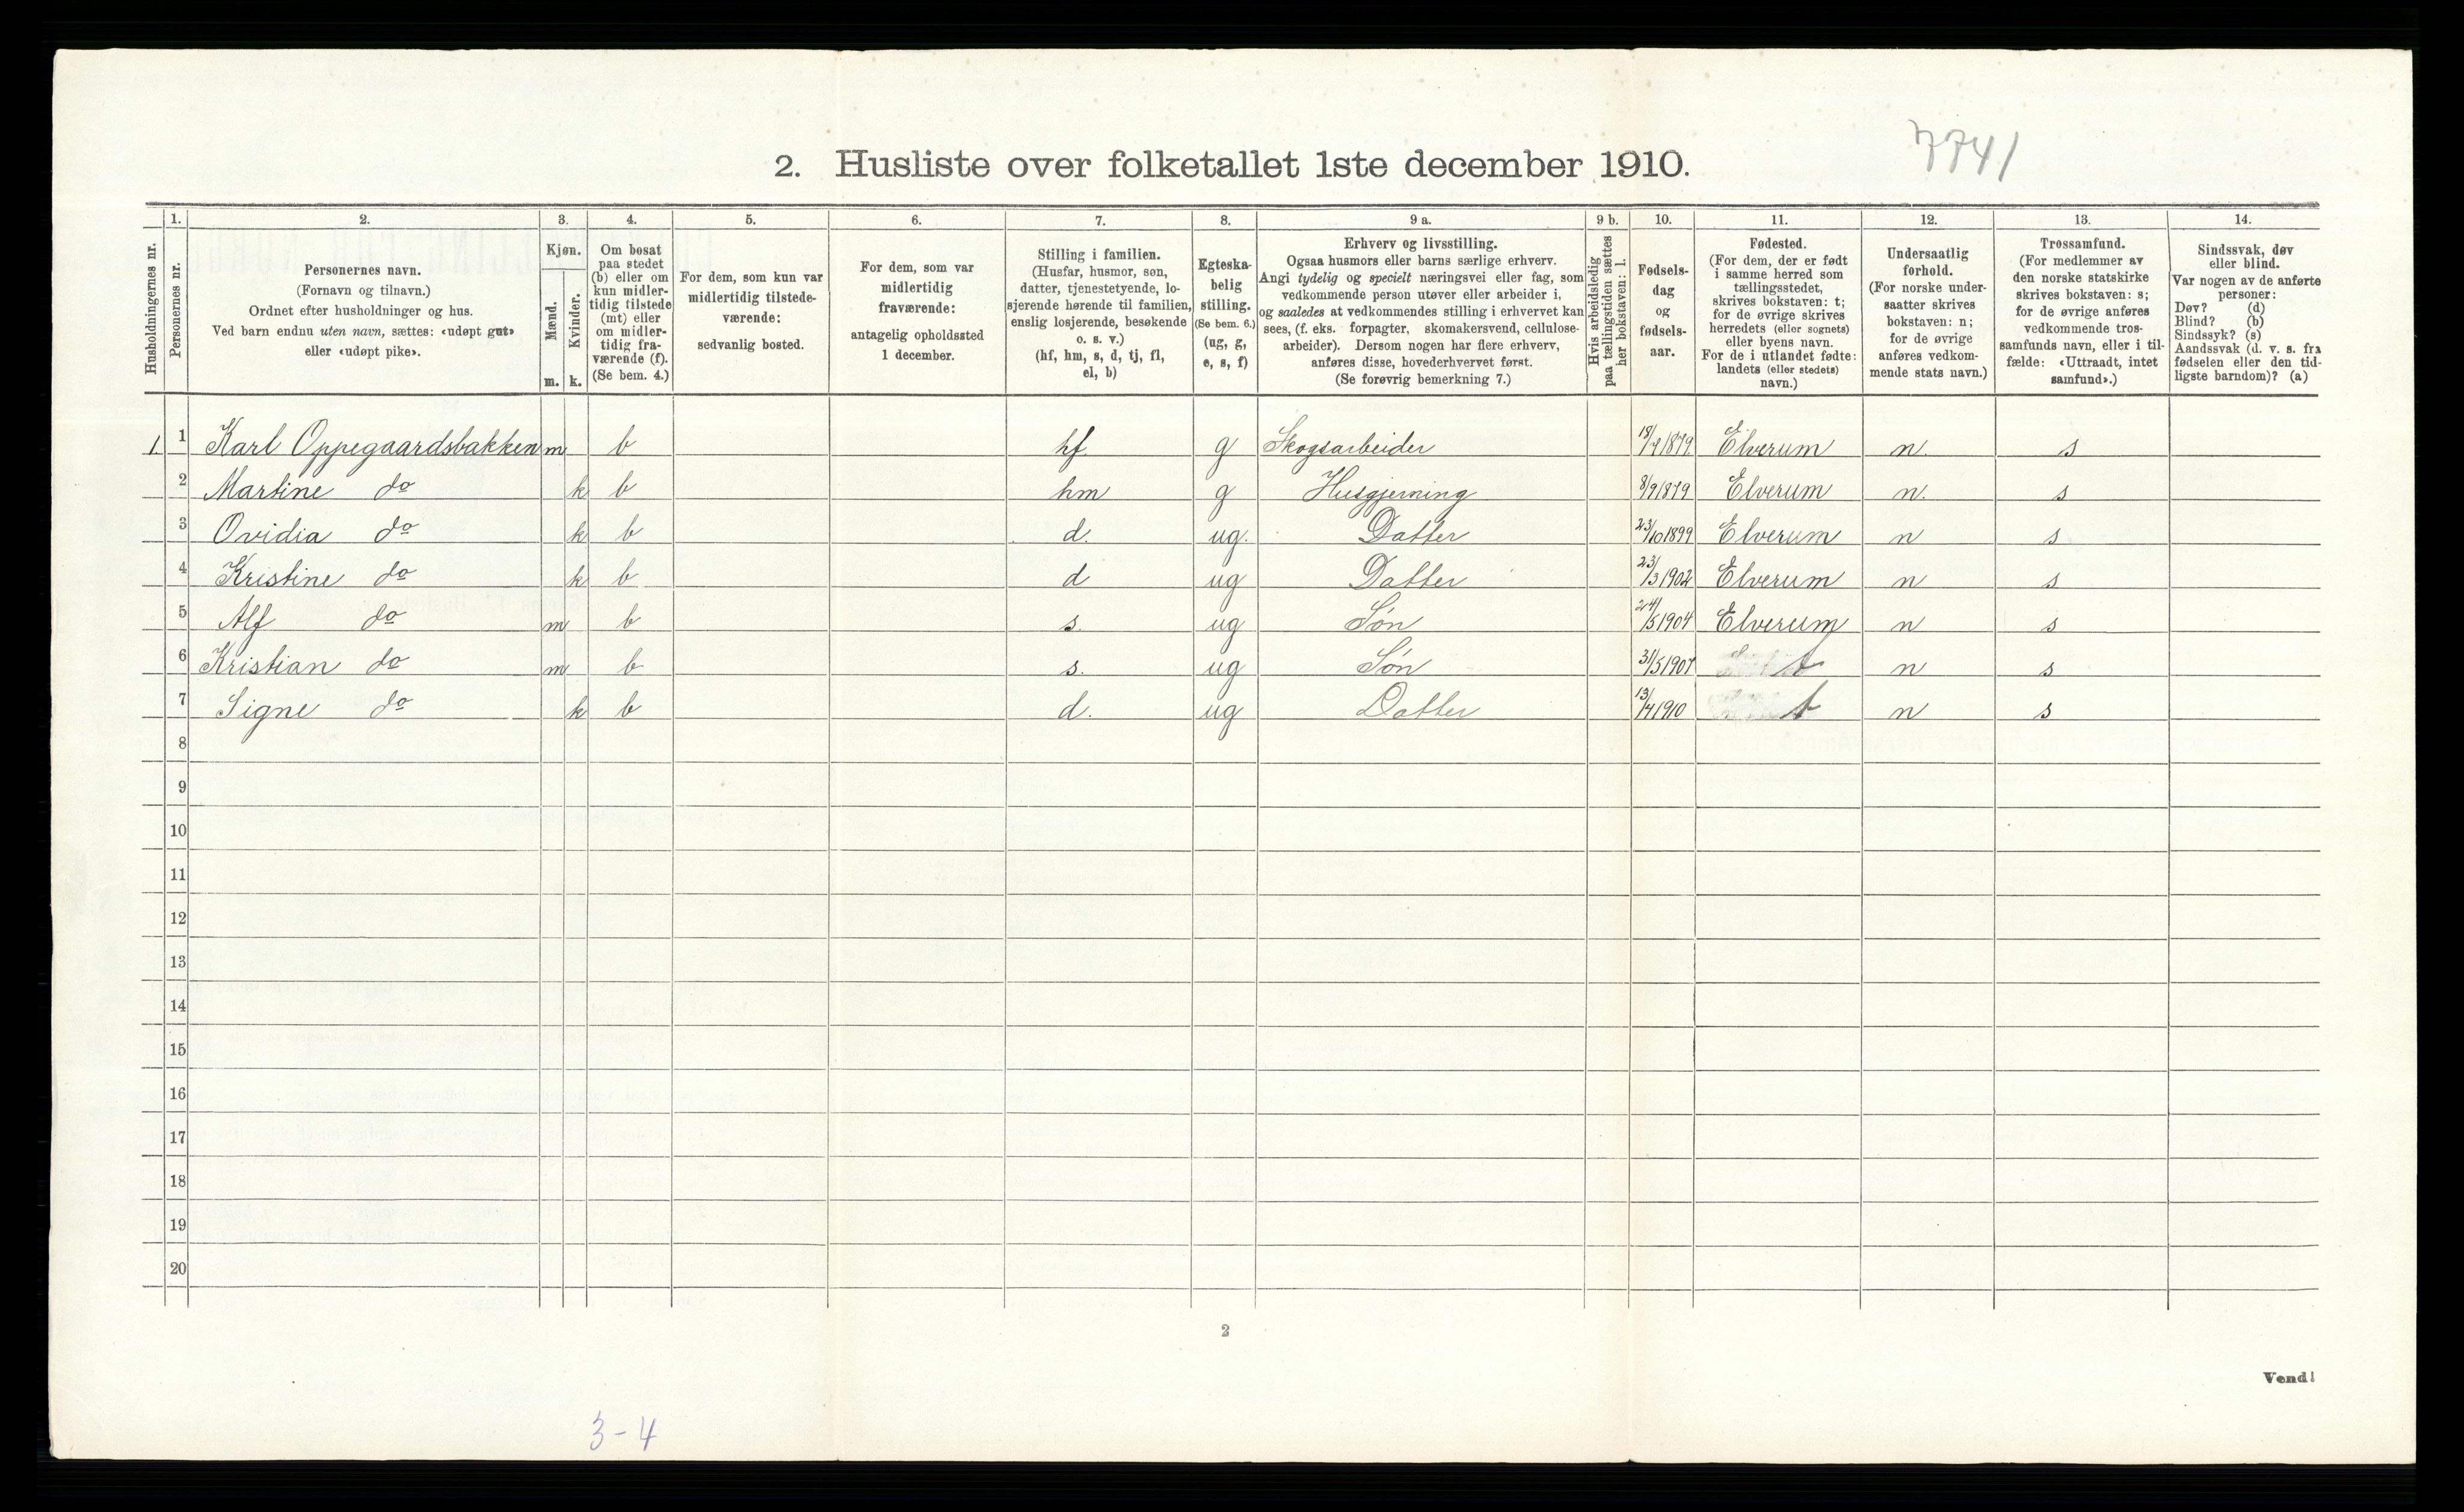 7741
2. Husliste over folketallet 1ste december 1910.
Husholdningernes nr.
1.
Personernes nr.
2.
Personernes navn.
(Fornavn og tilnavn.)
Ordnet efter husholdninger og hus.
Ved barn endnu uten navn, sættes: «udøpt gut»
eller «udøpt pike».
3.
Kjøn.
Mænd.
m.
Kvinder.
k.
4.
Om bosat
paa stedet
(b) eller om
kun midler-
tidig tilstede
(mt) eller
om midler-
tidig fra-
værende (f).
(Se bem. 4.)
5.
For dem, som kun var
midlertidig tilstede-
værende:
sedvanlig bosted.
6.
For dem, som var
midlertidig
fraværende:
antagelig opholdssted
1 december.
7.
Stilling i familien.
(Husfar, husmor, søn,
datter, tjenestetyende, lo-
sjerende hørende til familien,
enslig losjerende, besøkende
o. s. v.)
(hf, hm, s, d, tj, fl,
el, b)
8.
Egteska-
belig
stilling.
(Se bem. 6.)
(ug, g,
e, s, f)
9 a.
Erhverv og livsstilling.
Ogsaa husmors eller barns særlige erhverv.
Angi tydelig og specielt næringsvei eller fag, som
vedkommende person utøver eller arbeider i,
og saaledes at vedkommendes stilling i erhvervet kan
sees, (f. eks. forpagter, skomakersvend, cellulose-
arbeider). Dersom nogen har flere erhverv,
anføres disse, hovederhvervet først.
(Se forøvrig bemerkning 7.)
9 b.
Hvis arbeidsledig
paa tællingstiden sættes
her bokstaven: l.
10.
Fødsels-
dag
og
fødsels-
aar.
11.
Fødested.
(For dem, der er født
i samme herred som
tællingsstedet,
skrives bokstaven: t;
for de øvrige skrives
herredets (eller sognets)
eller byens navn.
For de i utlandet fødte:
landets (eller stedets)
navn.)
12.
Undersaatlig
forhold.
(For norske under-
saatter skrives
bokstaven: n;
for de øvrige
anføres vedkom-
mende stats navn.)
13.
Trossamfund.
(For medlemmer av
den norske statskirke
skrives bokstaven: s;
for de øvrige anføres
vedkommende tros-
samfunds navn, eller i til-
fælde: «Uttraadt, intet
samfund».)
14.
Sindssvak, døv
eller blind.
Var nogen av de anførte
personer:
Døv? (d)
Blind? (b)
Sindssyk? (s)
Aandssvak (d. v. s. fra
fødselen eller den tid-
ligste barndom)? (a)
1. 1 Karl Oppegaardsbakken m b hf. g Skogsarbeider 18/7 1879. Elverum n. s
2 Martine do k b hm g Husgjerning 8/9 1879 Elverum n. s
3 Ovidia do k b d. ug. Datter 23/10 1899 Elverum n s
4 Kristine do k b d ug Datter 23/3 1902 Elverum n s
5 Alf do m b s. ug Søn 24/5 1904 Elverum n s
6 Kristian do m b s. ug Søn 31/5 1907 t n s
7 Signe do k b d. ug Datter 13/4 1910 t n s
8
9
10
11
12
13
14
15
16
17
18
19
20
2
Vend!
3-4